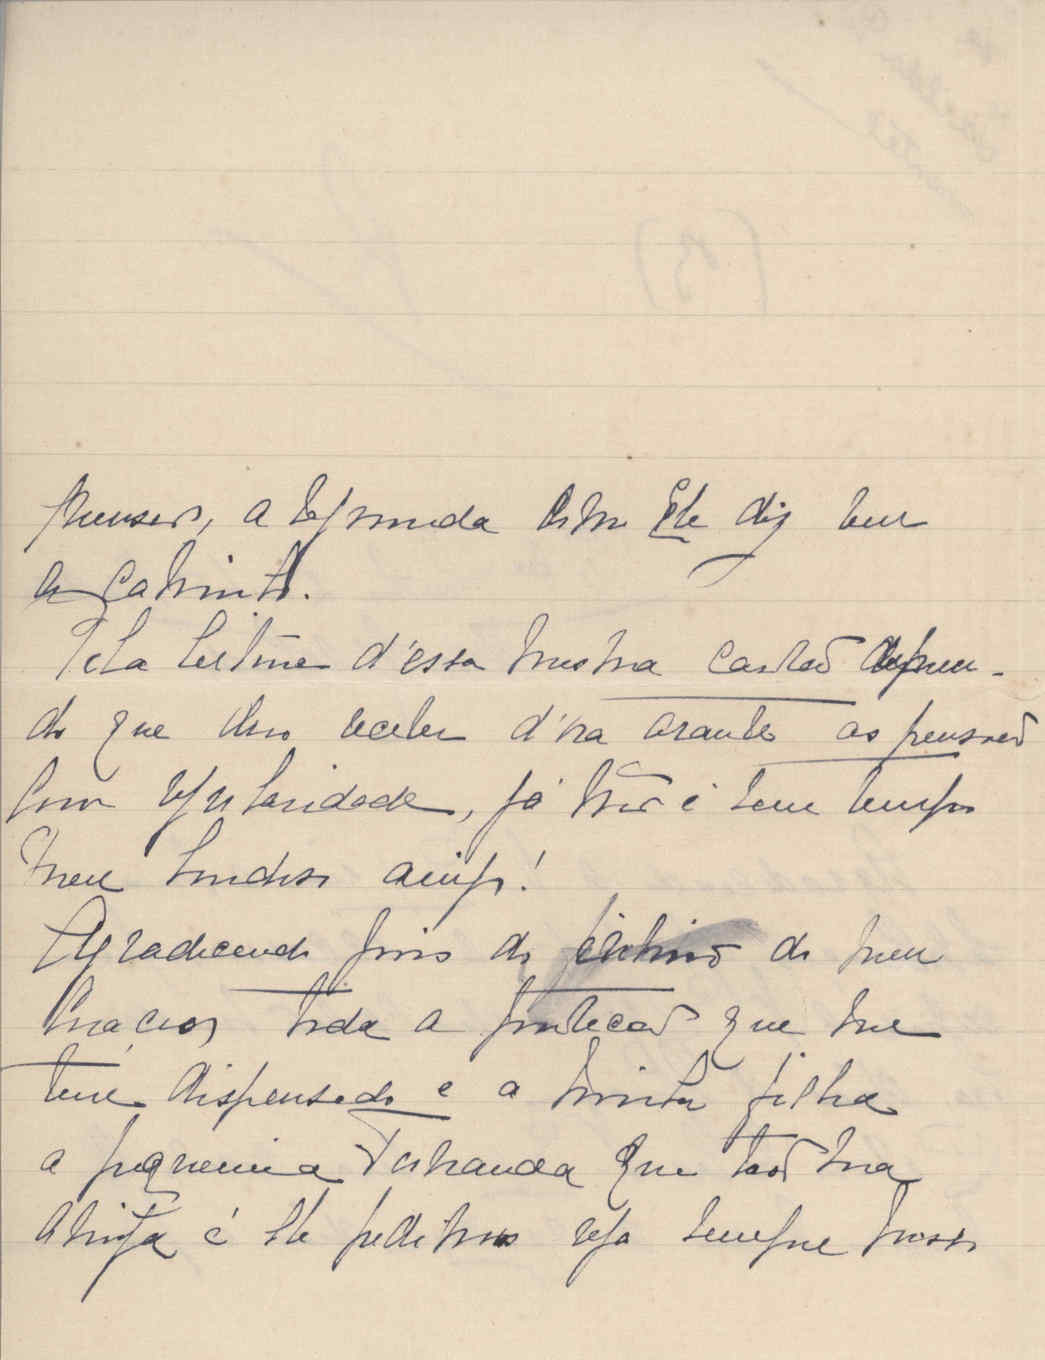 pensões, a segunda como Ele diz vem
a caminho.
Pela leitura d'essa nossa cartão depreen-
do que devo receber d'ora avante as pensões
com regularidade, já não é sem tempo
meu bondoso amigo!
Agradecendo pois do íntimo do meu
coração toda a proteção que me
tem dispensado e a minha filha
a pequenina Fernanda que tão sua
amiga é lhe pedimos seja sempre nosso